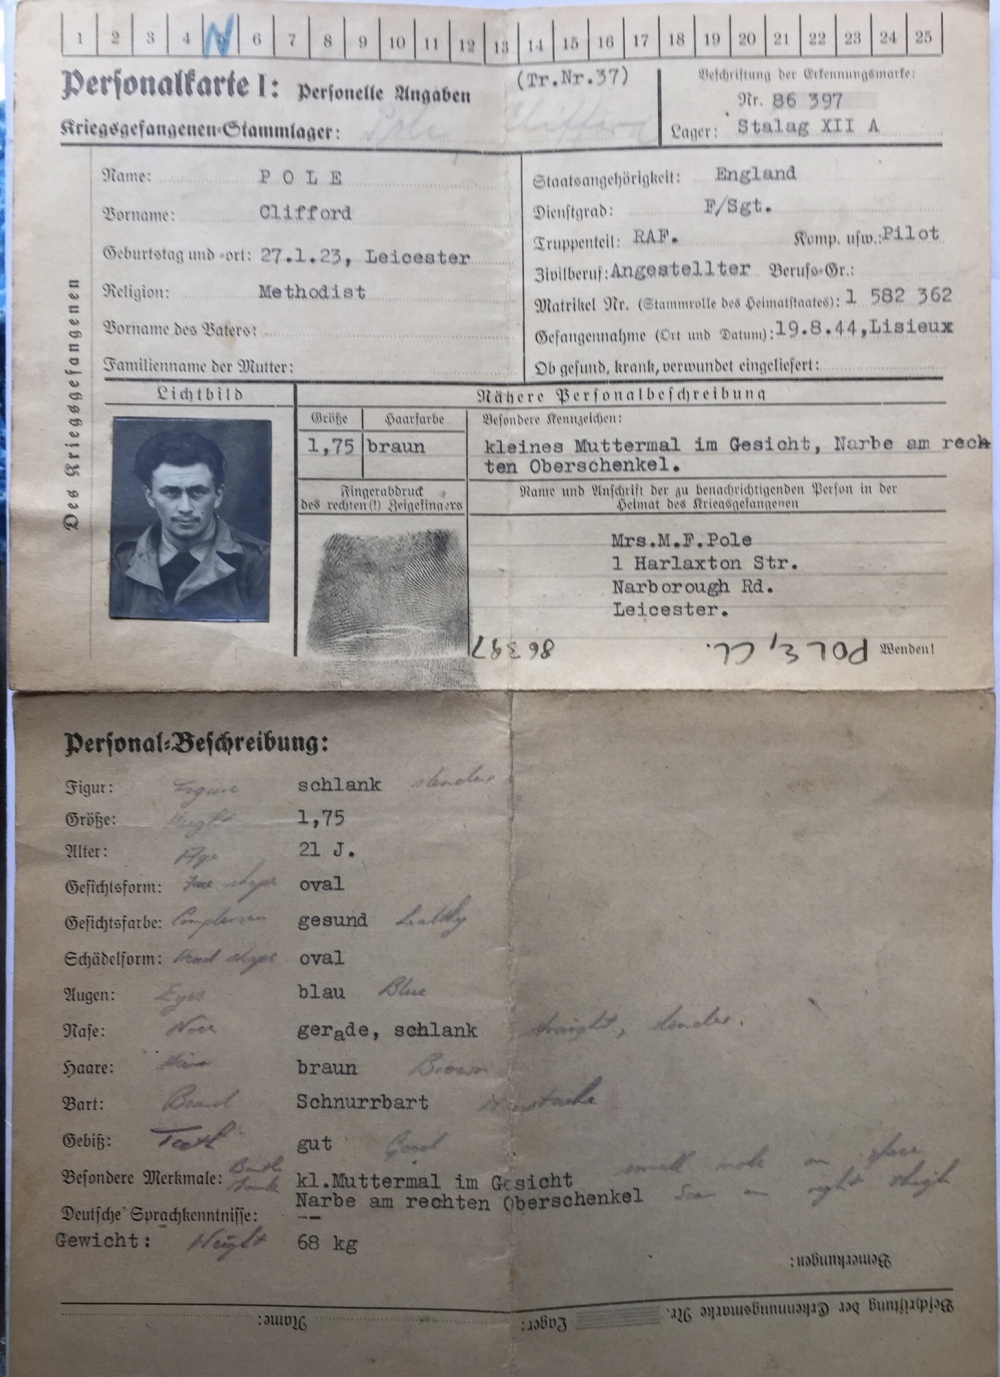 1 2 3 4 5 6 7 8 9 10 11 12 13 14 15 16 17 18 19 20 21 22 23 24 25
N
Personalkarte I: Personelle Angaben
(Tr.Nr.37)
Beschriftung der Erkennungsmarke:
Nr. 86 397
Kriegsgefangenen-Stammlager: Pole Clifford
Lager: Stalag XII A
Des Kriegsgefangenen
Name: POLE
Vorname: Clifford
Geburtstag und -ort: 27.1.23, Leicester
Religion: Methodist
Vorname des Vaters:
Familienname der Mutter:
Staatsangehörigkeit: England
Dienstgrad: F/Sgt.
Truppenteil: RAF. Komp. usw.: Pilot
Zivilberuf: Angestellter Berufs-Gr.:
Matrikel Nr. (Stammrolle des Heimatstaates): 1 582 362
Gefangennahme (Ort und Datum): 19.8.44, Lisieux
Ob gesund, krank, verwundet eingeliefert:
Lichtbild
Nähere Personalbeschreibung
Größe Haarfarbe Besondere Kennzeichen:
1,75 braun kleines Muttermal im Gesicht, Narbe am rech
ten Oberschenkel.
Fingerabdruck
des rechten(!) Zeigefingers
Name und Anschrift der zu benachrichtigenden Person in der
Heimat des Kriegsgefangenen
Mrs.M.F.Pole
1 Harlaxton Str.
Narborough Rd.
Leicester.
POLE, CL. 86397
Wenden!
Personal-Beschreibung:
Figur: Figure schlank slender
Größe: Height 1,75
Alter: Age 21 J.
Gesichtsform: Face shape oval
Gesichtsfarbe: Complexion gesund healthy
Schädelform: Head shape oval
Augen: Eyes blau Blue
Nase: Nose gerade, schlank straight, slender.
Haare: Hair braun Brown
Bart: Beard Schnurrbart Moustache
Gebiß: Teeth gut Good
Besondere Merkmale: Birth mark kl.Muttermal im Gesicht small mole on face
Narbe am rechten Oberschenkel Scar on right thigh
Deutsche Sprachkenntnisse: --
Gewicht: Weight 68 kg
Bemerkungen:
Beschriftung der Erkennungsmarke Nr.
Lager:
Name: